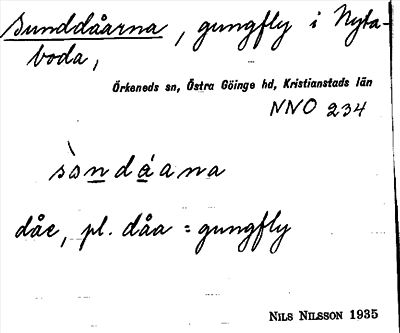 Sunddåarna, gungfly i Nyta-
boda,
Örkeneds sn, Östra Göinge hd, Kristianstads län
NNO 234
sòndáana
dåe, pl. dåa = gungfly
NILS NILSSON 1935